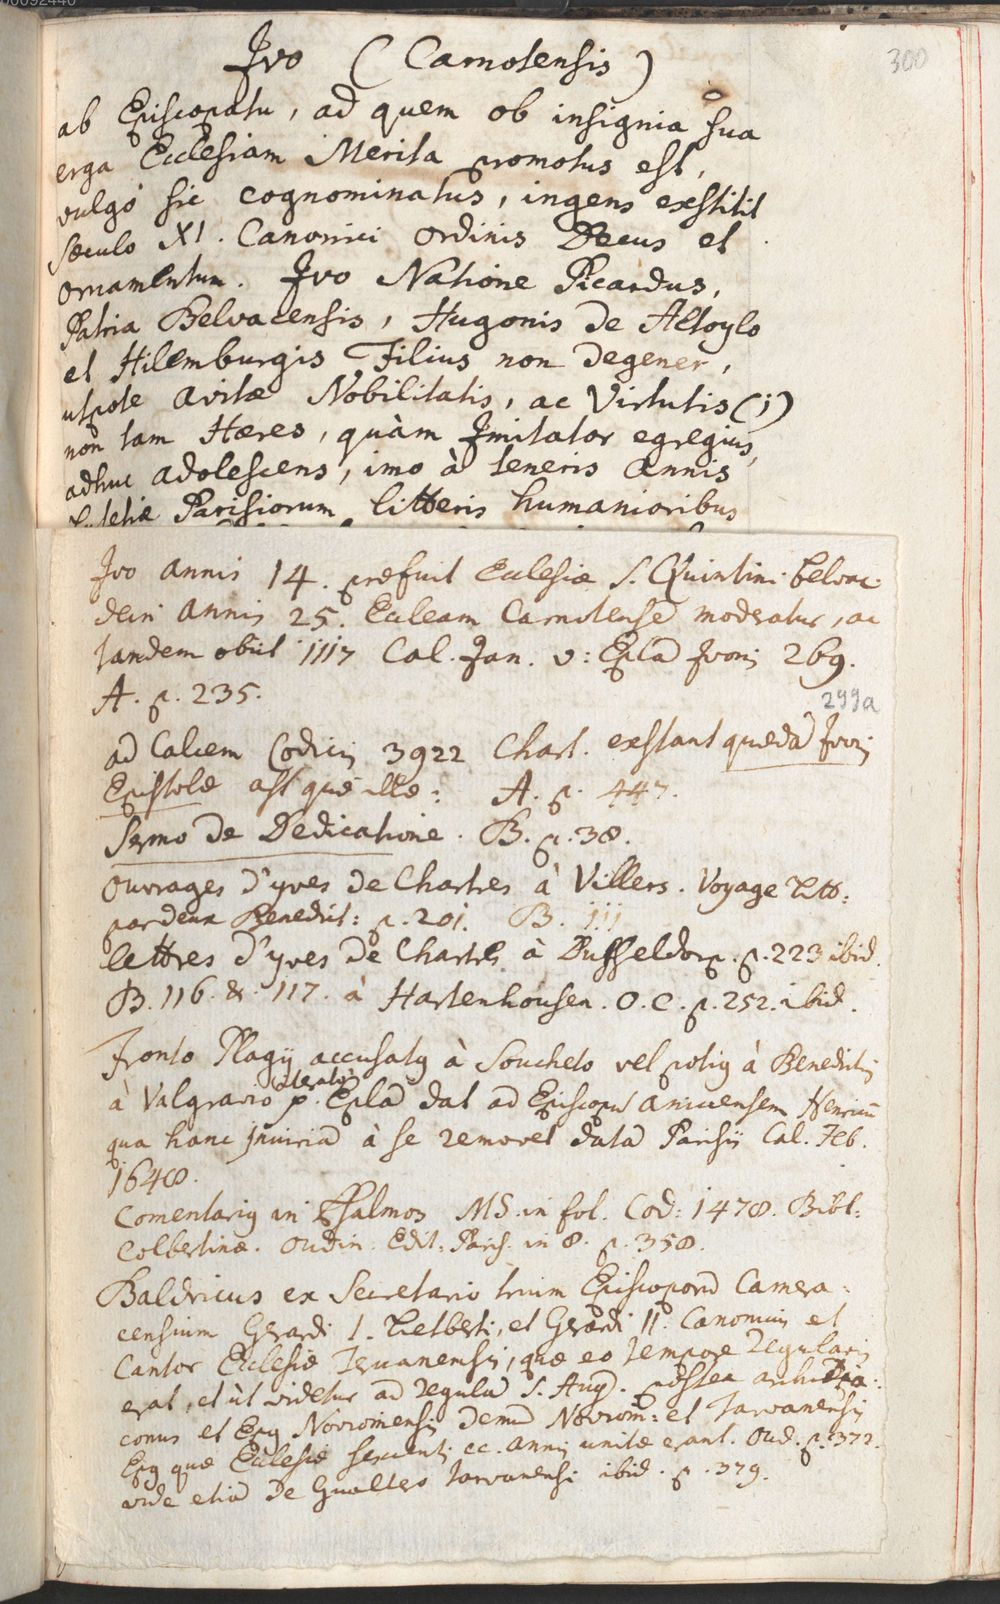 00092440
300
Ivo (Carnotensis)
ab Episcopatu, ad quem ob insignia sua
erga Ecclesiam Merita promotus est,
vulgò sic cognominatus, ingens exstitit
sæculo XI. Canonici Ordinis Decus et
Ornamentum. Ivo Natione Picardus,
Patria Belvacensis, Hugonis de Altoylo
et Hilemburgis Filius non degener,
utpote avitæ Nobilitatis, ac Virtutis (i)
non tam Hæres, quàm Imitator egregius,
adhuc adolescens, imo à teneris annis
Lutetiæ Parisiorum litteris humanioribus
Ivo annis 14. præfuit Eclesiæ S. Quintini belvac.
dein annis 25. Ecleam Carnotense moderatur, ac
tandem obiit 1117 Cal. Jan. v: Epla Ivonis 269.
A. p. 235.
299a
ad Calcem Codicis 3922 Chart. exstant quædã Ivonis
Epistolæ ast quæ illæ: A. p. 447.
Sermo de Dedicatione. B. p. 38.
Ouvrages d'yves de Chartres à Villers. Voyage litt:
par deux Benedict: p. 201. B. iii
lettres d'yves de Chartres à Dusseldorp. p. 223 ibid.
B. 116. & 117. à Hartenhousen. O. C. p. 252. ibid.
Fronto Plagij accusatq à Soucheto vel potiq à Benedictis
à Valgravio p. Epla dat ad Episcopũ aniciensem Henricũ
qua hanc injuriã à se removet datã Parisiis Cal. Feb.
1648.
Comentariq in Psalmos MS. in fol. Cod: 1478. Bibl:
Colbertinæ. Oudin. Edit. Paris. in 8. p. 358.
Baldricus ex Secretario trium Episcoporũ Camera-
censium Gerardi I. Lietberti, et Gerardi II. Canonicus et
Cantor Eclesiæ Teruanensis, quæ eo tempore regularis
erat, et ùt videtur ad regulã S. Aug. postea archidia-
conus et Epq Noviomensis demũ Noviom: et Tarvanensis
Epq quæ Eclesiæ sexcentis ec. annis unitæ erant. Oud. p. 372.
vide etiã de Gualtero Tarvanensi ibid. p. 379.